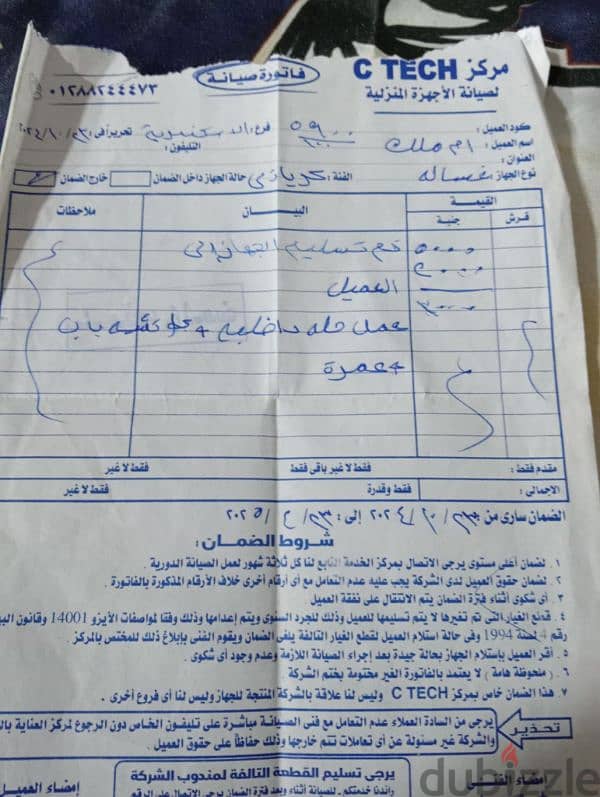 مركز C TECH
فاتورة صيانة
لصيانة الأجهزة المنزلية
٠١٢٨٨٢٤٤٤٧٣
كود العميل: ٥٩٠٠
اسم العميل: ام ملك
فرع: الاسكندرية تحريراً فى:
العنوان:
التليفون:
نوع الجهاز: غساله
الفئة:
حالة الجهاز داخل الضمان
خارج الضمان
القيمة
البيـــــان
ملاحظات
قرش
جنية
٥٠٠٠ تم تسليم الجهاز الى
٢٠٠٠ العميل
٣٠٠٠
عمل حله داخليه +
باب
+ عمرة
مقدم فقط:
فقط لا غير باقى فقط
فقط لا غير
الإجمالى:
فقط وقدرة
فقط لا غير
الضمان سارى من ٢٠٢٤ إلى: ٢٠٢٥
شروط الضمان:
١ . لضمان أعلى مستوى يرجى الاتصال بمركز الخدمة التابع لنا كل ثلاثة شهور لعمل الصيانة الدورية .
٢ . لضمان حقوق العميل لدى الشركة يجب عليه عدم التعامل مع أى أرقام أخرى خلاف الأرقام المذكورة بالفاتورة .
٣ . أى شكوى أثناء فترة الضمان يتم الانتقال على نفقة العميل
٤ . قطع الغيار التى تم تغيرها لا يتم تسليمها للعميل وذلك للجرد السنوى ويتم إعدامها وذلك وفقا لمواصفات الأيزو 14001 وقانون البي
رقم 4 لسنة 1994 وفى حالة استلام العميل لقطع الغيار التالفة يلغى الضمان ويقوم الفنى بإبلاغ ذلك للمختص بالمركز .
٥ . أقر العميل بإستلام الجهاز بحالة جيدة بعد إجراء الصيانة اللازمة وعدم وجود أى شكوى .
٦ . (ملحوظة هامة) لا يعتمد بالفاتورة الغير مختومة بختم الشركة .
٧ . هذا الضمان خاص بمركز C TECH وليس لنا علاقة بالشركة المنتجة للجهاز وليس لنا أى فروع أخرى .
تحذير
يرجى من السادة العملاء عدم التعامل مع فنى الصيانة مباشرة على تليفون الخاص دون الرجوع لمركز العناية بالع
والشركة غير مسئولة عن أى تعاملات تتم خارجها وذلك حفاظاً على حقوق العميل .
إمضاء الفنى
يرجى تسليم القطعة التالفة لمندوب الشركة
إمضاء العميل
dubizzle